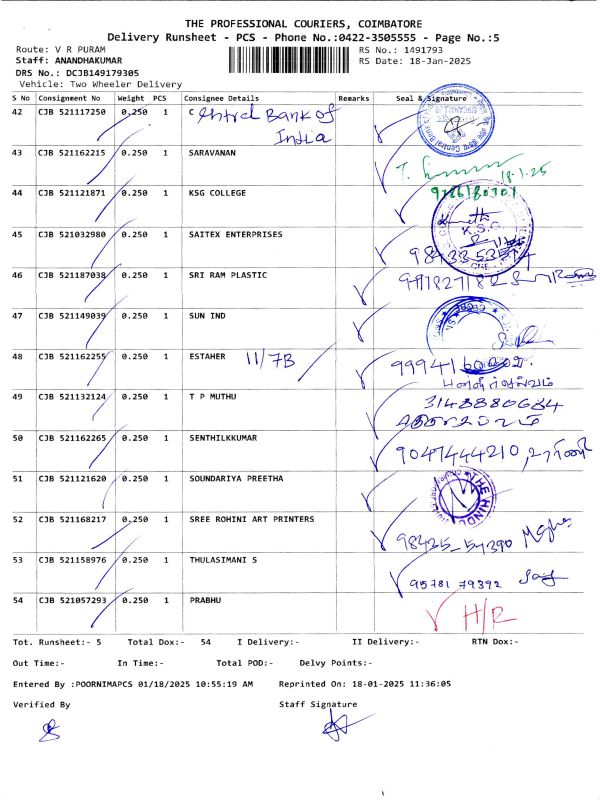 THE PROFESSIONAL COURIERS, COIMBATORE
Delivery Runsheet - PCS - Phone No.:0422-3505555 - Page No.:5
Route: V R PURAM RS No.: 1491793
Staff: ANANDHAKUMAR RS Date: 18-Jan-2025
DRS No.: DCJB149179305
Vehicle: Two Wheeler Delivery
S No Consignment No Weight PCS Consignee Details Remarks Seal & Signature
42 CJB 521117250 0.250 1 C entral Bank of India
43 CJB 521162215 0.250 1 SARAVANAN 18.1.25
44 CJB 521121871 0.250 1 KSG COLLEGE K.S.G
45 CJB 521032980 0.250 1 SAITEX ENTERPRISES
46 CJB 521187038 0.250 1 SRI RAM PLASTIC
47 CJB 521149039 0.250 1 SUN IND
48 CJB 521162255 0.250 1 ESTAHER 11/7B
49 CJB 521132124 0.250 1 T P MUTHU 3148880684
50 CJB 521162265 0.250 1 SENTHILKKUMAR 9047444210,
51 CJB 521121620 0.250 1 SOUNDARIYA PREETHA THE HINDU
52 CJB 521168217 0.250 1 SREE ROHINI ART PRINTERS 98435-54390
53 CJB 521158976 0.250 1 THULASIMANI S 95781 79392
54 CJB 521057293 0.250 1 PRABHU H/R
Tot. Runsheet:- 5 Total Dox:- 54 I Delivery:- II Delivery:- RTN Dox:-
Out Time:- In Time:- Total POD:- Delvy Points:-
Entered By :POORNIMAPCS 01/18/2025 10:55:19 AM Reprinted On: 18-01-2025 11:36:05
Verified By Staff Signature